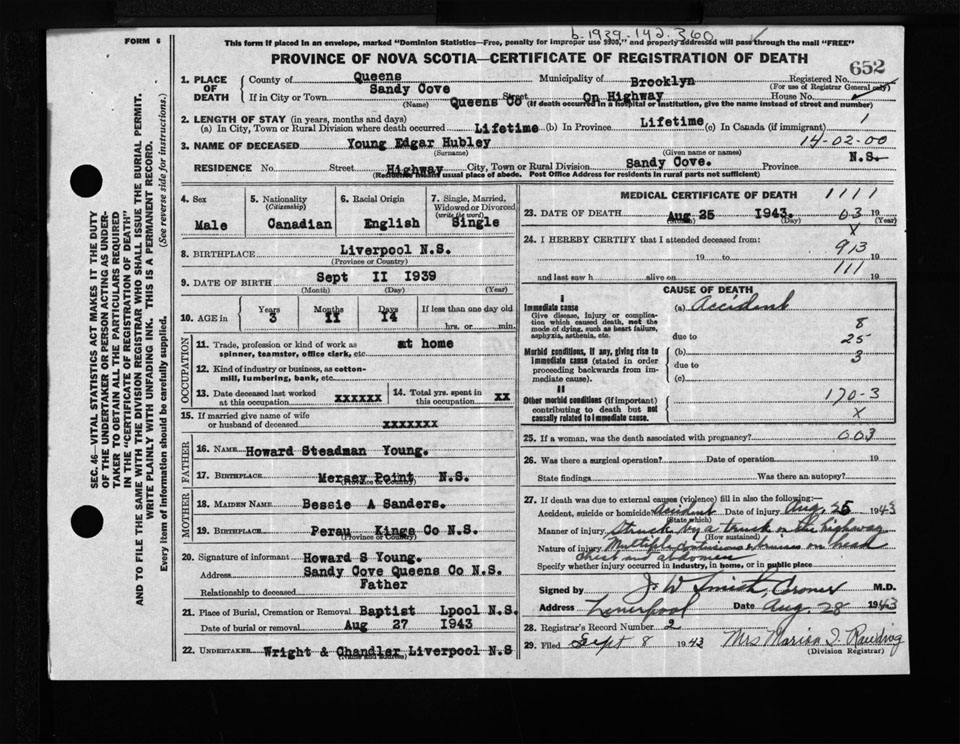 b.1939.142.360
FORM 6
This form if placed in an envelope, marked "Dominion Statistics—Free, penalty for improper use $300," and properly addressed will pass through the mail "FREE"
PROVINCE OF NOVA SCOTIA—CERTIFICATE OF REGISTRATION OF DEATH
652
1. PLACE OF DEATH
County of Queens Municipality of Brooklyn Registered No.
(For use of Registrar General only)
If in City or Town Sandy Cove Queens Co Street On Highway House No.
(Name) (If death occurred in a hospital or institution, give the name instead of street and number)
2. LENGTH OF STAY (in years, months and days)
(a) In City, Town or Rural Division where death occurred Lifetime (b) In Province Lifetime (c) In Canada (if immigrant) 1
3. NAME OF DECEASED Young Edgar Hubley 14-02-00
(Surname) (Given name or names)
RESIDENCE No. Street Highway City, Town or Rural Division Sandy Cove. Province N.S.
(Residence means usual place of abode. Post Office Address for residents in rural parts not sufficient)
4. Sex Male
5. Nationality (Citizenship) Canadian
6. Racial Origin English
7. Single, Married, Widowed or Divorced (write the word) Single
8. BIRTHPLACE Liverpool N.S.
(Province or Country)
9. DATE OF BIRTH Sept II 1939
(Month) (Day) (Year)
10. AGE in Years 3 Months II Days 14 If less than one day old hrs. or min.
OCCUPATION
11. Trade, profession or kind of work as spinner, teamster, office clerk, etc. at home
12. Kind of industry or business, as cotton-mill, lumbering, bank, etc.
13. Date deceased last worked at this occupation xxxxxx
14. Total yrs. spent in this occupation xx
15. If married give name of wife or husband of deceased xxxxxxx
FATHER
16. NAME Howard Steadman Young.
17. BIRTHPLACE Mersey Point N.S.
(Province or Country)
MOTHER
18. MAIDEN NAME Bessie A Sanders.
19. BIRTHPLACE Perau Kings Co N.S.
(Province or Country)
20. Signature of informant Howard S Young.
Address Sandy Cove Queens Co N.S.
Relationship to deceased Father
21. Place of Burial, Cremation or Removal Baptist Lpool N.S.
Date of burial or removal Aug 27 1943
22. UNDERTAKER Wright & Chandler Liverpool N.S
(Name and address)
MEDICAL CERTIFICATE OF DEATH 1111
23. DATE OF DEATH Aug 25 1943. 03 19
(Month) (Day) (Year)
X
24. I HEREBY CERTIFY that I attended deceased from:
913
19 to 19
111
and last saw h alive on 19
CAUSE OF DEATH
I
Immediate cause (a) Accident
Give disease, injury or complication which caused death, not the mode of dying, such as heart failure, asphyxia, asthenia, etc.
8
due to 25
Morbid conditions, if any, giving rise to immediate cause (stated in order proceeding backwards from immediate cause).
(b) 3
due to
(c)
II
Other morbid conditions (if important) contributing to death but not causally related to immediate cause.
170-3
X
25. If a woman, was the death associated with pregnancy? 003
26. Was there a surgical operation? Date of operation 19
State findings Was there an autopsy?
27. If death was due to external causes (violence) fill in also the following:—
Accident, suicide or homicide Accident Date of injury Aug. 25 1943
(State which)
Manner of injury Struck by a truck on the highway
(How sustained)
Nature of injury Multiple contusions & bruises on head
chest and abdomen
Specify whether injury occurred in industry, in home, or in public place
Signed by J. W. Smith, Croner M.D.
Address Liverpool Date Aug. 28 1943
28. Registrar's Record Number 2
29. Filed Sept 8 1943 Mrs Marion
(Division Registrar)
SEC. 46—VITAL STATISTICS ACT MAKES IT THE DUTY
OF THE UNDERTAKER OR PERSON ACTING AS UNDER-
TAKER TO OBTAIN ALL THE PARTICULARS REQUIRED
IN THE "CERTIFICATE OF REGISTRATION OF DEATH"
AND TO FILE THE SAME WITH THE DIVISION REGISTRAR WHO SHALL ISSUE THE BURIAL PERMIT.
WRITE PLAINLY WITH UNFADING INK. THIS IS A PERMANENT RECORD.
Every item of information should be carefully supplied. (See reverse side for instructions.)